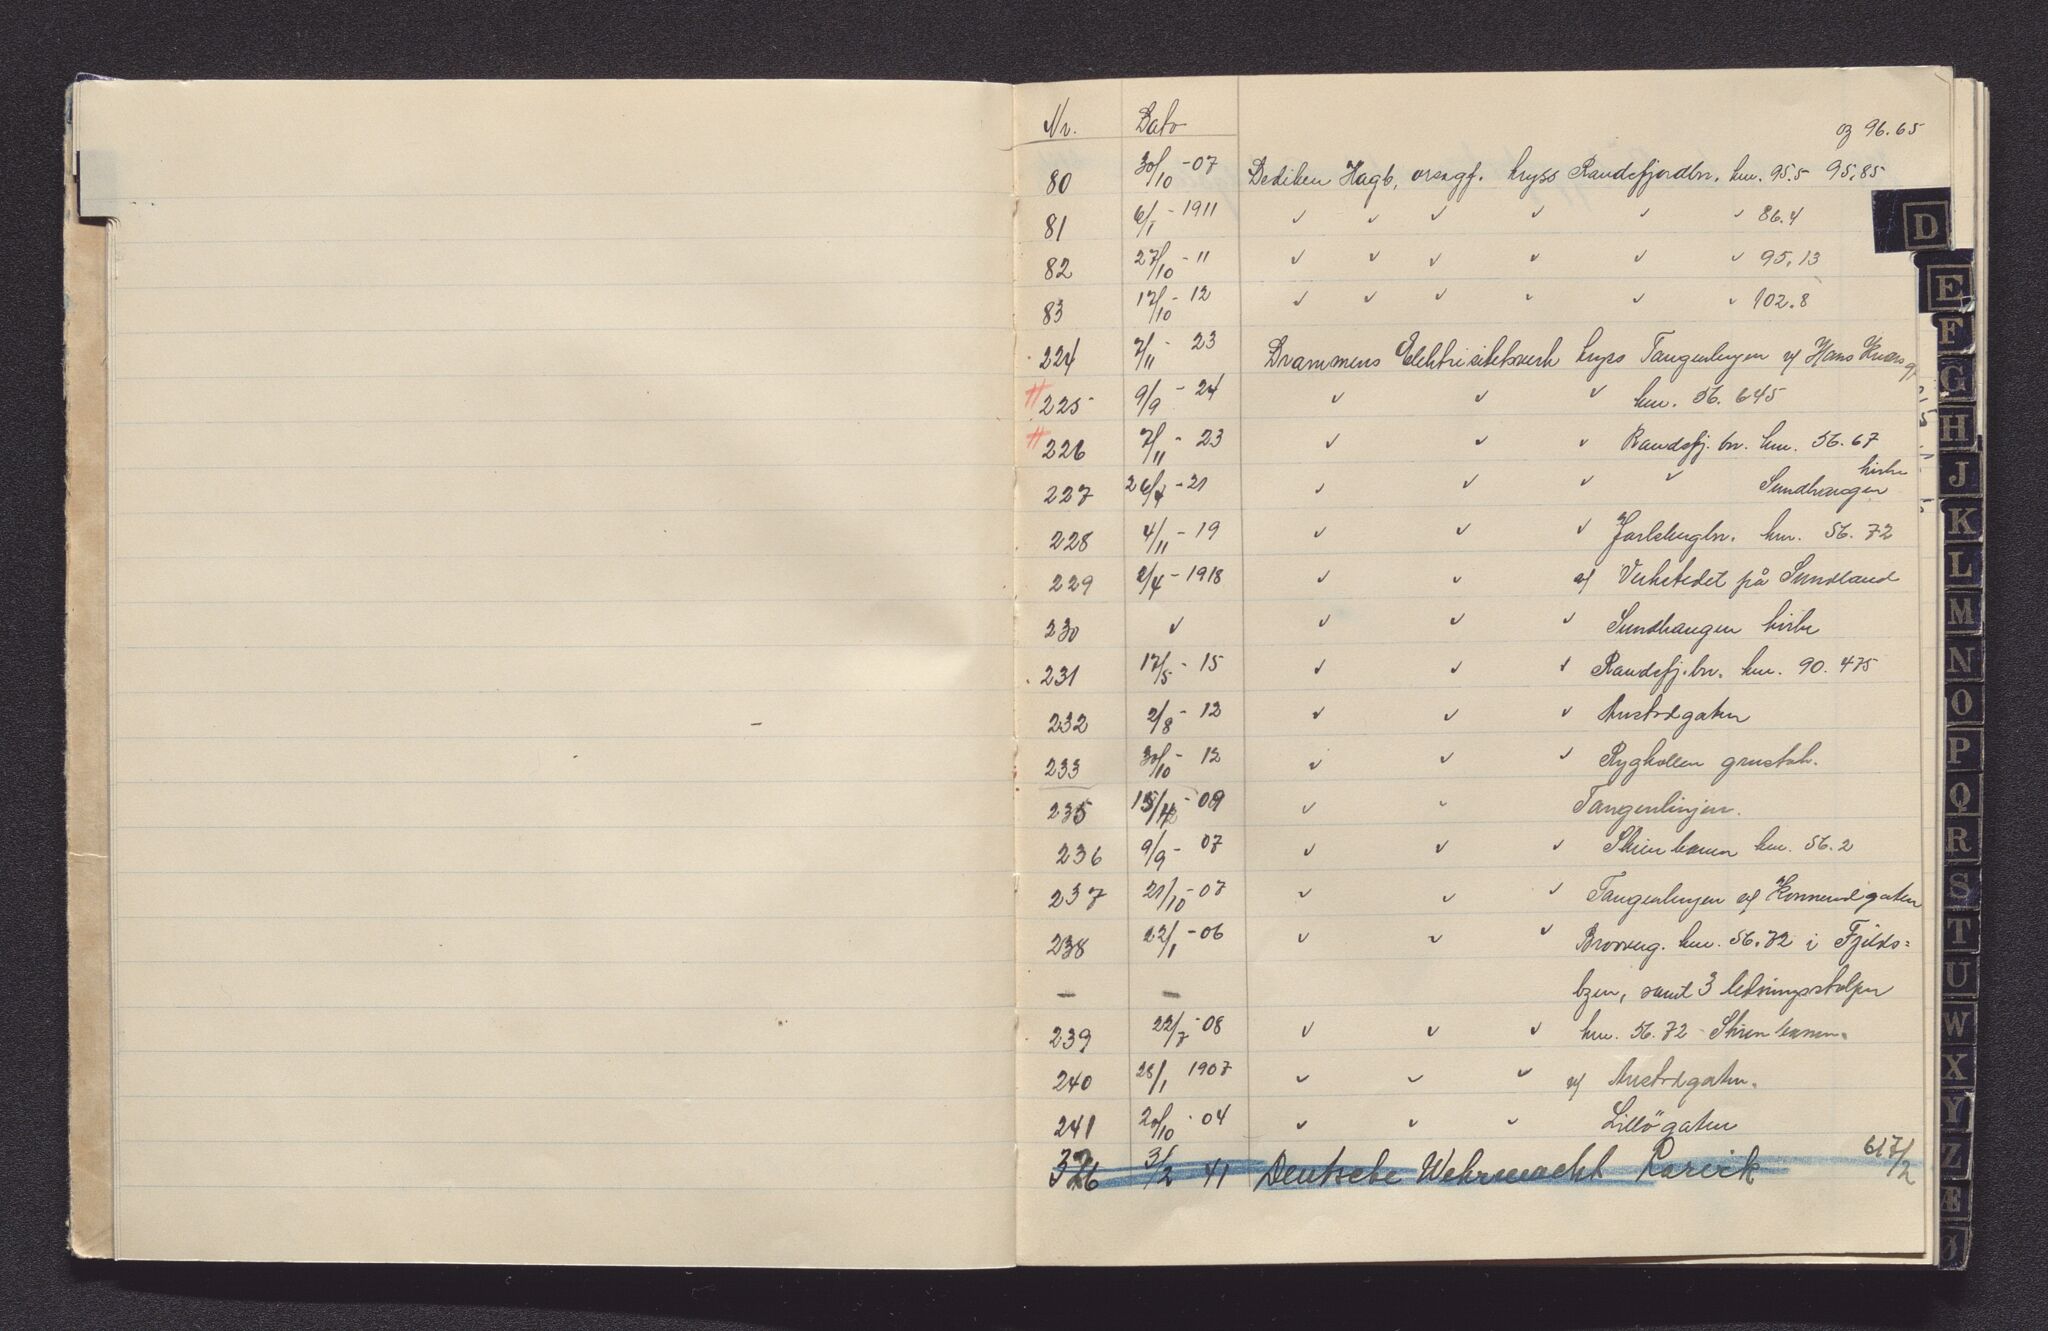 Nr. Dato
og 96.65
80 30/10 -07 Dediken Hagb, kryss Randsfjordbn. km. 95.5 95,85
81 6/1 - 1911 " " " " " " 86.4
82 27/10 - 11 " " " " " " 95,13
83 17/10 - 12 " " " " " " 102.8
224 7/11 - 23 Drammens Elektrisitetsverk kryss Tangenlinjen v/ Hans
225 9/9 - 24 " " " km. 56.645
226 7/11 - 23 " " " Randsfj. bn. km. 56.67
227 26/4 - 21 " " " " Sundhaugen kirke
228 4/11 - 19 " " " Jarlsbergbn. km. 56.72
229 2/4 - 1918 " " v/ Verkstedet på Sundland
230 " " " " Sundhaugen kirke
231 17/5 - 15 " " " Randsfj.bn. km. 90.475
232 2/8 - 12 " " " Austadgaten
233 30/10 - 12 " " " Rygkollen grustak.
235 15/12 - 09 " " Tangenlinjen.
236 9/9 - 07 " " " Skiensbanen km. 56.2
237 21/10 - 07 " " " Tangenlinjen v/ Konnerudgaten
238 22/1 - 06 " " " km. 56.72 i Fjelds=
— — byen, samt 3 ledningsstolper
239 22/7 - 08 " " " km. 56.72 - Skiensbanen.
240 28/1 1907 " " " v/ Austadgaten.
241 20/10 - 04 " " " Lilløgaten
326 3/2 41 Deutsche Wehrmacht Larvik 617/2
D
E
F
G
H
J
K
L
M
N
O
P
Q
R
S
T
U
W
X
Y
Z
Æ
Ø